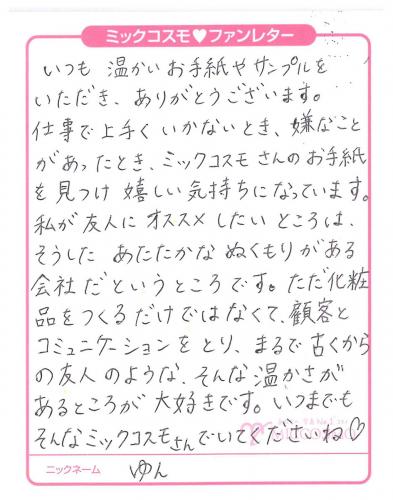 ミックコスモ♥ファンレター
いつも 温かいお手紙やサンプルを
いただき、ありがとうございます。
仕事で上手くいかないとき、嫌なこと
があったとき、ミックコスモさんのお手紙
を見つけ嬉しい気持ちになっています。
私が友人にオススメしたいところは、
そうした あたたかな ぬくもりがある
会社だというところです。ただ化粧
品をつくるだけではなくて、顧客と
コミュニケーションをとり、まるで古くから
の友人のような、そんな温かさが
あるところが大好きです。いつまでも
そんなミックコスモさんでいてくださいね♡
ニックネーム ゆん